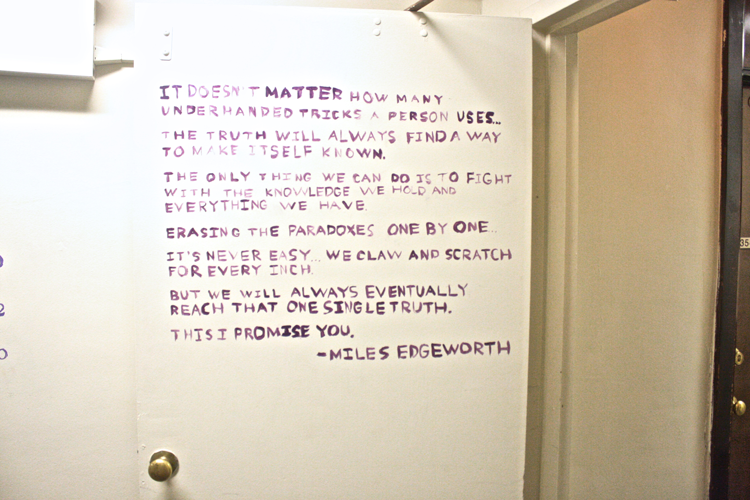 IT DOESN'T MATTER HOW MANY
UNDERHANDED TRICKS A PERSON USES...
THE TRUTH WILL ALWAYS FIND A WAY
TO MAKE ITSELF KNOWN.
THE ONLY THING WE CAN DO IS TO FIGHT
WITH THE KNOWLEDGE WE HOLD AND
EVERYTHING WE HAVE.
ERASING THE PARADOXES ONE BY ONE...
IT'S NEVER EASY... WE CLAW AND SCRATCH
FOR EVERY INCH.
BUT WE WILL ALWAYS EVENTUALLY
REACH THAT ONE SINGLE TRUTH.
THIS I PROMISE YOU.
-MILES EDGEWORTH